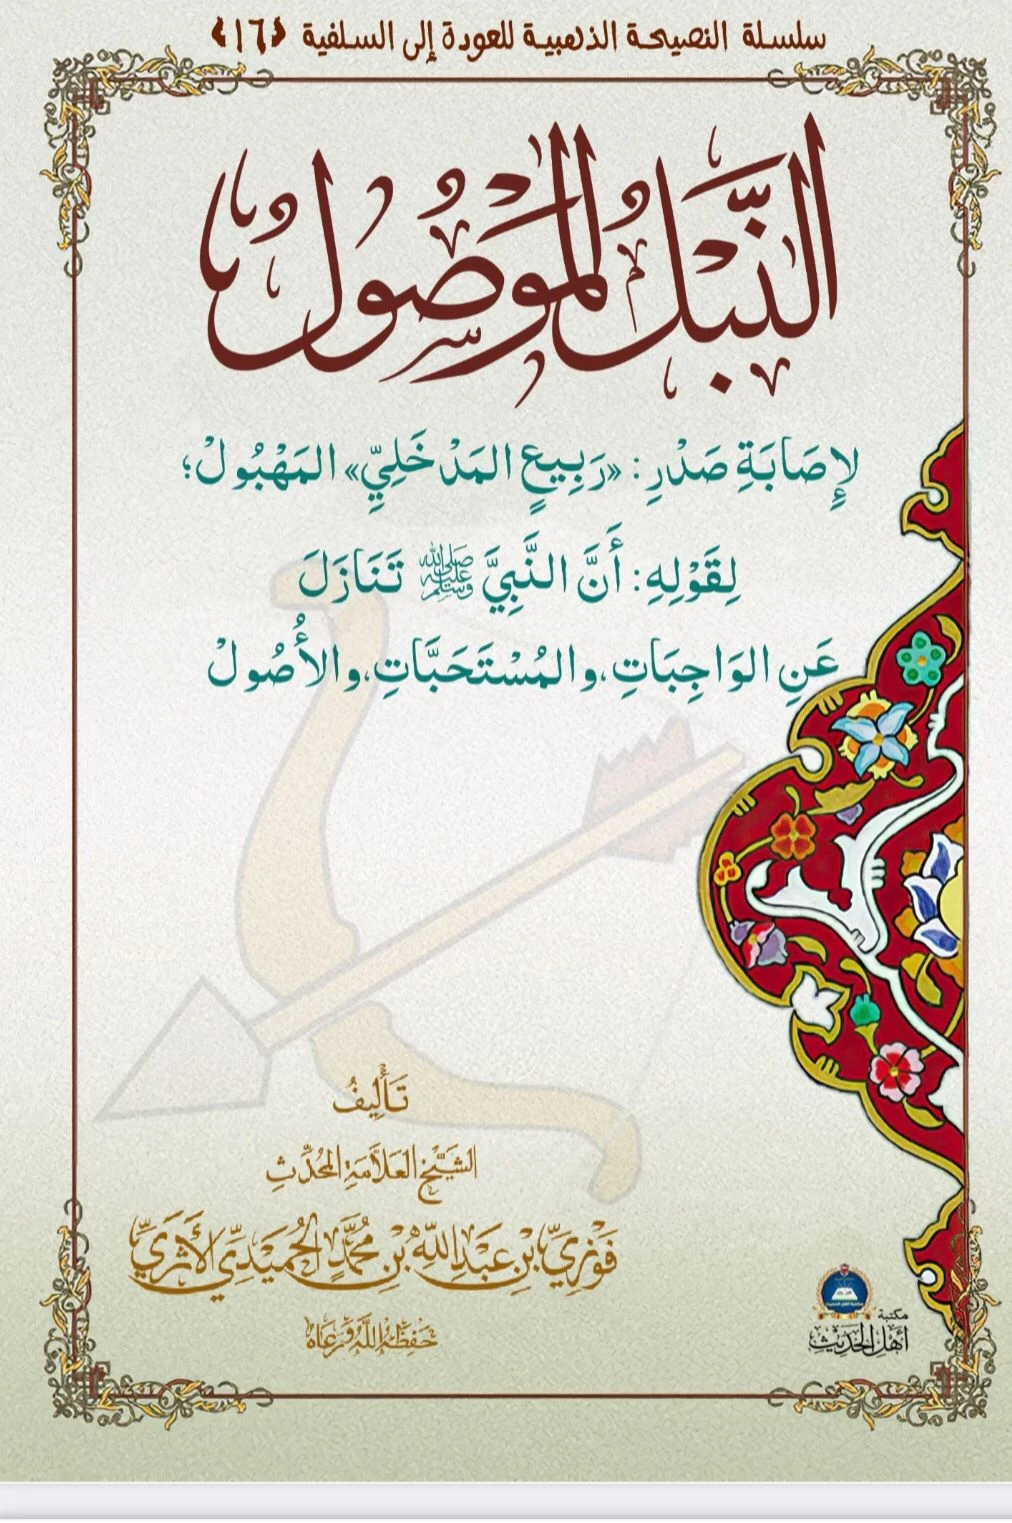 سلسلة النصيحة الذهبية للعودة إلى السلفية ﴿١٦﴾
النَّبْلُ المَوْصُولُ
لِإِصَابَةِ صَدْرِ: «رَبِيعٍ المَدْخَلِيِّ» المَهْبُولْ؛
لِقَوْلِهِ: أَنَّ النَّبِيَّ ﷺ تَنَازَلَ
عَنِ الوَاجِبَاتِ، والمُسْتَحَبَّاتِ، والأُصُولْ
تَأْلِيفُ
الشَّيْخِ العَلَّامَةِ المُحَدِّثِ
فَوْزِيِّ بْنِ عَبْدِ اللَّهِ بْنِ مُحَمَّدٍ الحُمَيْدِيِّ الأَثَرِيِّ
حَفِظَهُ اللَّهُ وَرَعَاهُ
مكتبة
أهل الحديث